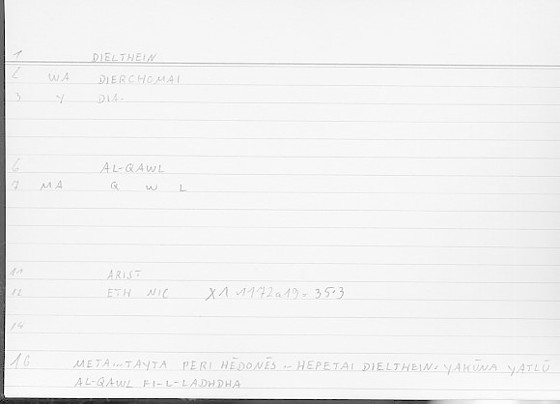 1 DIELTHEIN
2 WA DIERCHOMAI
3 Y DIA-
6 AL-QAWL
7 MA Q W L
11 ARIST
12 ETH NIC X1 1172a19 = 35.3
14
16 META... TAYTA PERI HĒDONĒS ... HEPETAI DIELTHEIN = YAKŪNA YATLŪ
AL-QAWL FI-L-LADHDHA